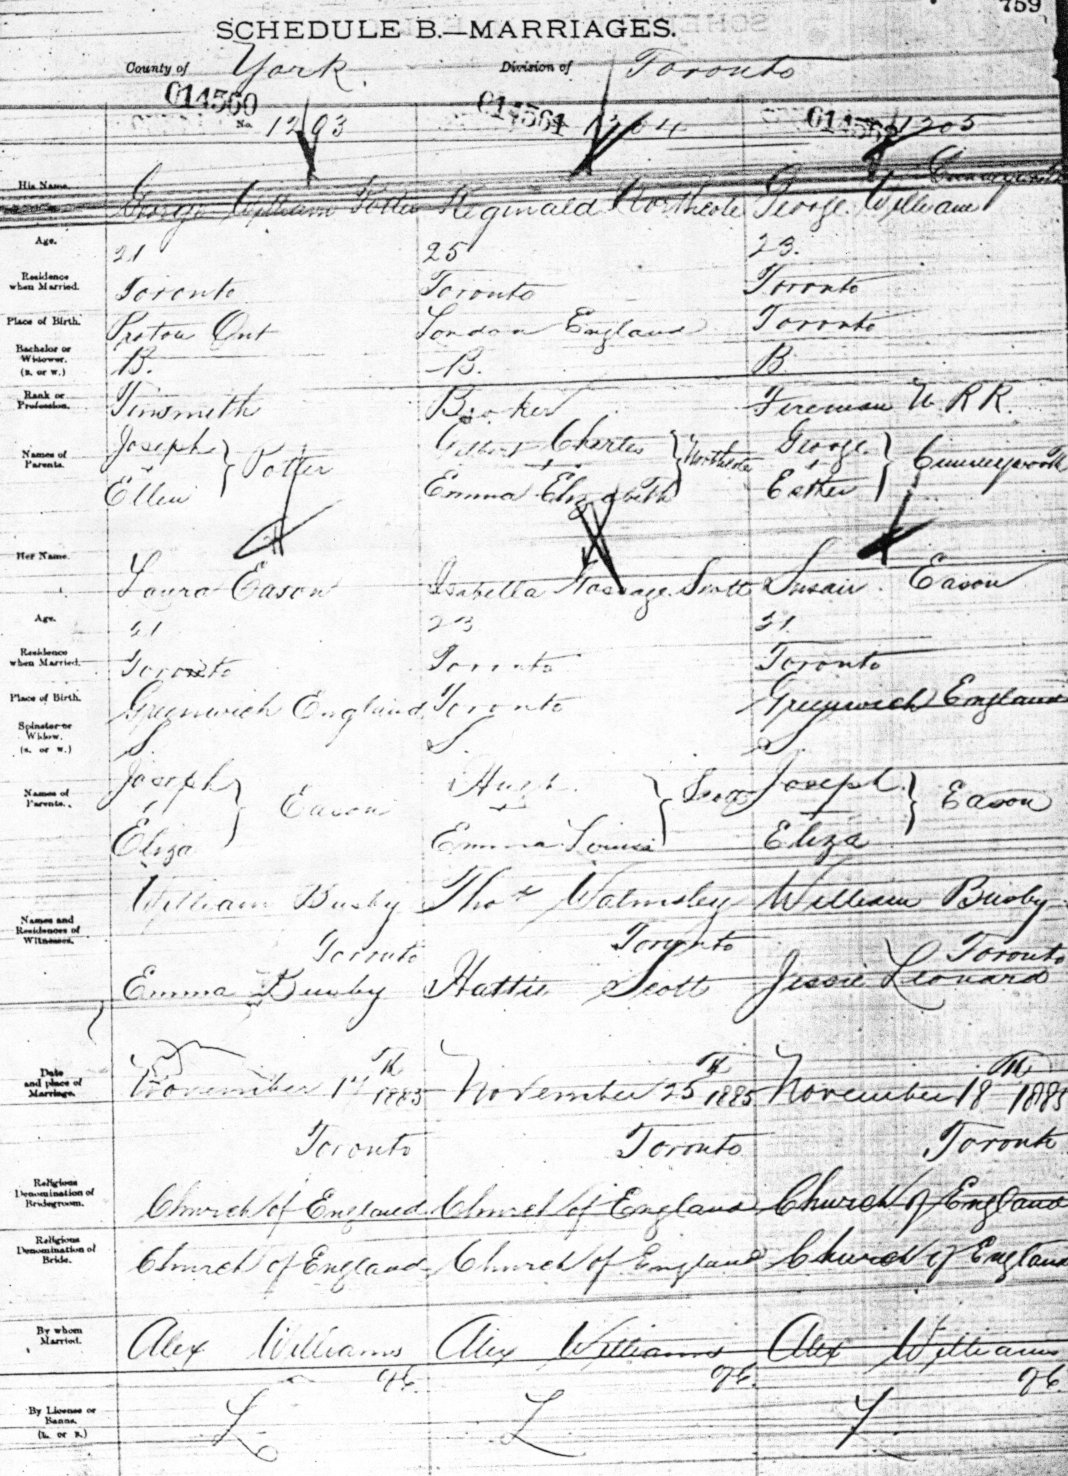 759
SCHEDULE B.—MARRIAGES.
County of York Division of Toronto
014560 014561 014562
No. 1203 1204 1205
His Name. George William Potter Reginald Northcote George William
Age. 21 25 23.
Residence when Married. Toronto Toronto Toronto
Place of Birth. Proton Ont London England Toronto
Bachelor or Widower. (B. or W.) B. B. B
Rank or Profession. Tinsmith Broker Fireman R R.
Names of Parents. Joseph Ellen } Potter Gilbert Charles Emma Elizabeth } Northcote George Esther }
Her Name. Laura Eason Isabella Scott Susan Eason
Age. 21 23 21
Residence when Married. Toronto Toronto Toronto
Place of Birth. Greenwich England Toronto Greenwich England
Spinster or Widow. (S. or W.) S. S. S
Names of Parents. Joseph Eliza } Eason Hugh Emma Louisa } Scott Joseph Eliza } Eason
Names and Residences of Witnesses. William Busby Thos Walmsley William Busby
Toronto Toronto Toronto
Emma Busby Hattie Scott Jessie Leonard
Date and place of Marriage. November th 1885 November 25 th 1885 November 18 th 1885
Toronto Toronto Toronto
Religious Denomination of Bridegroom. Church of England Church of England Church of England
Religious Denomination of Bride. Church of England Church of England Church of England
By whom Married. Alex Williams Alex Williams Alex Williams
By License or Banns. (L. or B.) L L L